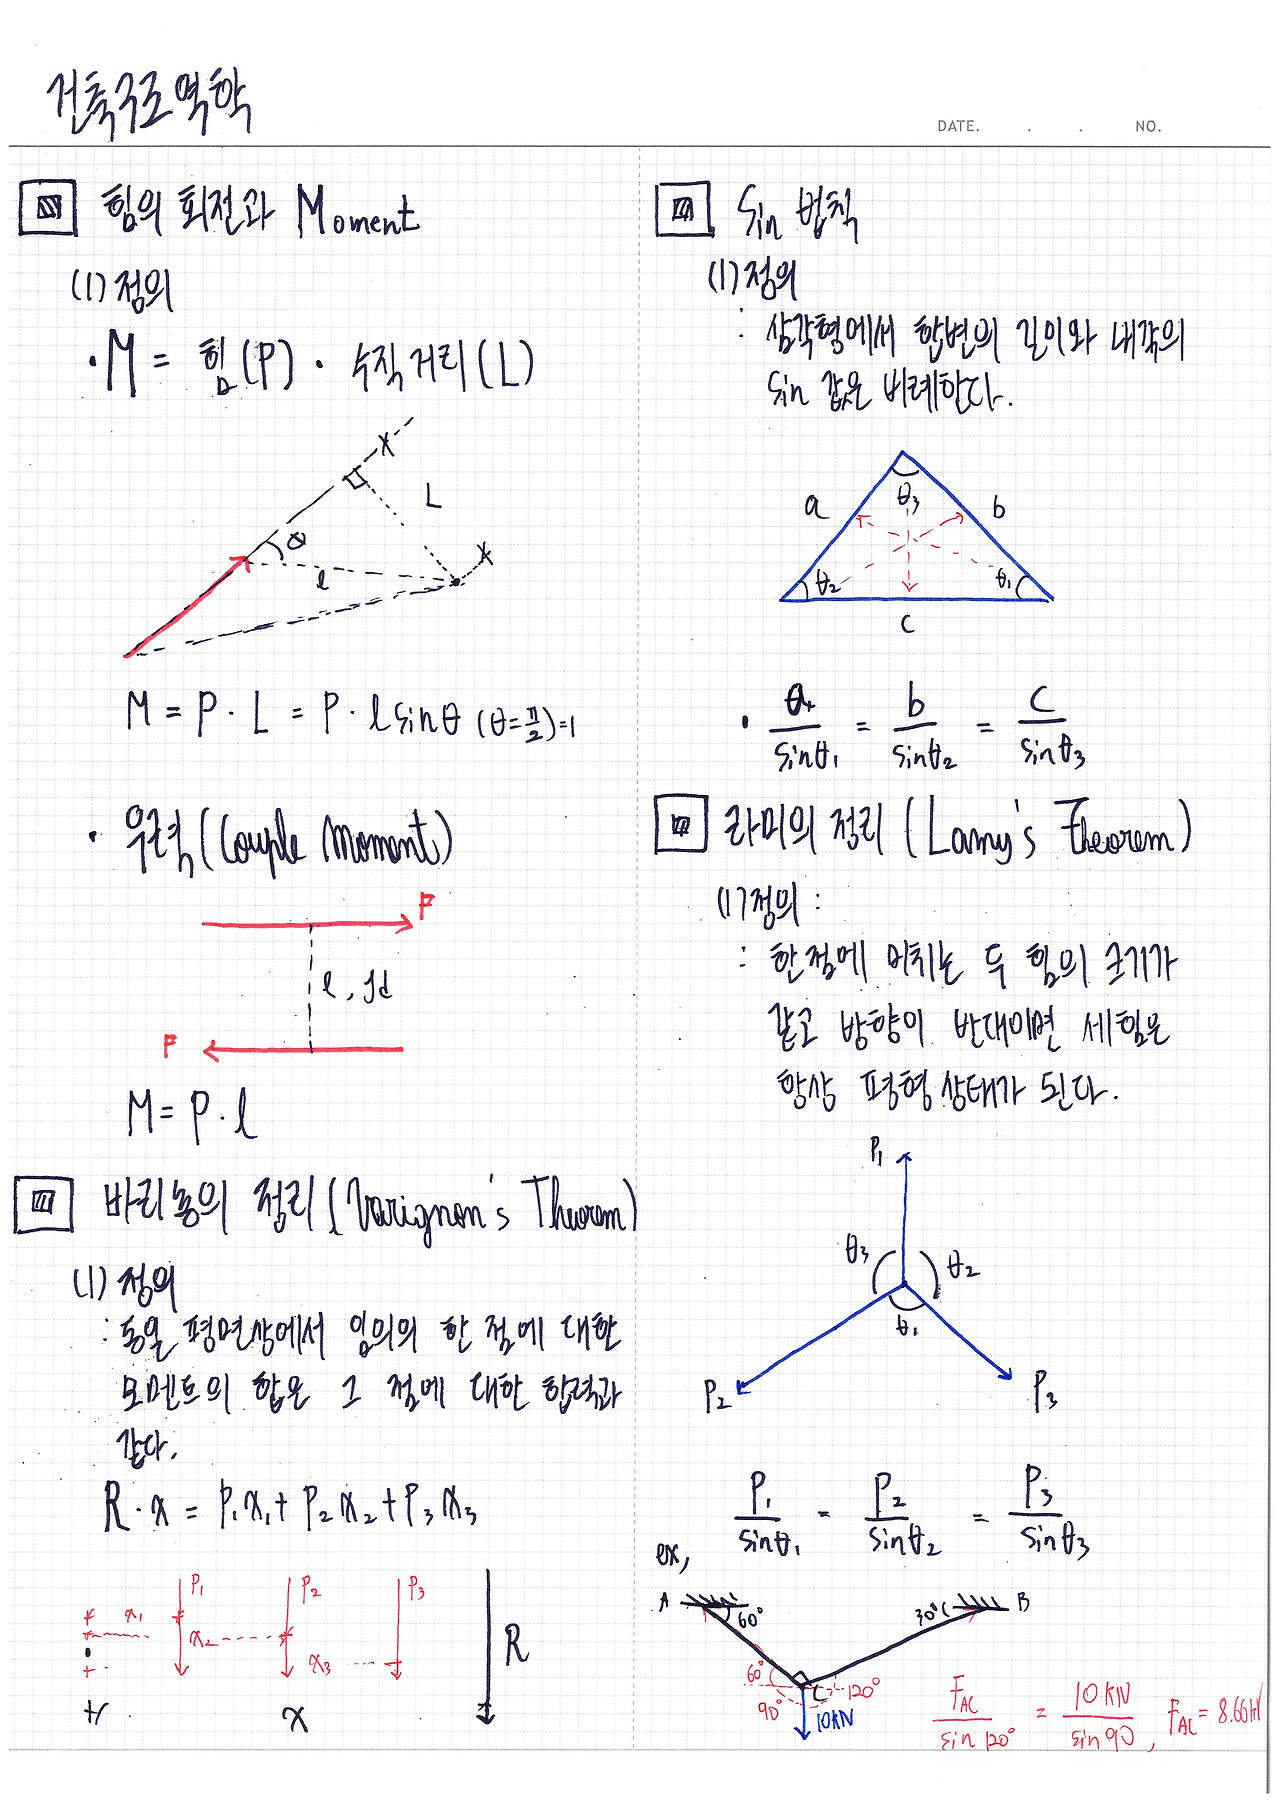 건축구조역학
DATE. . . NO.
힘의 회전과 Moment
(1) 정의
· M = 힘(P) · 수직거리(L)
X
L
θ
l
X
M = P · L = P · l sinθ (θ=π/2)=1
· 우력(Couple Moment)
P
l, jd
P
M = P · l
바리뇽의 정리(Varignon's Theorem)
(1) 정의
: 동일 평면상에서 임의의 한 점에 대한
모멘트의 합은 그 점에 대한 합력과
같다.
R · x = P₁x₁ + P₂x₂ + P₃x₃
P₁ P₂ P₃
x₁
x₂
x₃
R
x
Sin 법칙
(1) 정의
: 삼각형에서 한변의 길이와 내각의
Sin 값은 비례한다.
θ₃
a b
θ₂ θ₁
c
· a/sinθ₁ = b/sinθ₂ = c/sinθ₃
라미의 정리 (Lamy's Theorem)
(1) 정의 :
: 한점에 미치는 두 힘의 크기가
같고 방향이 반대이면 세힘은
항상 평형상태가 된다.
P₁
θ₃ θ₂
θ₁
P₂ P₃
P₁/sinθ₁ = P₂/sinθ₂ = P₃/sinθ₃
ex,
A 60° 30° B
60° C 120°
90° 10kN
F_AC/sin120° = 10KN/sin90, F_AC = 8.66kN